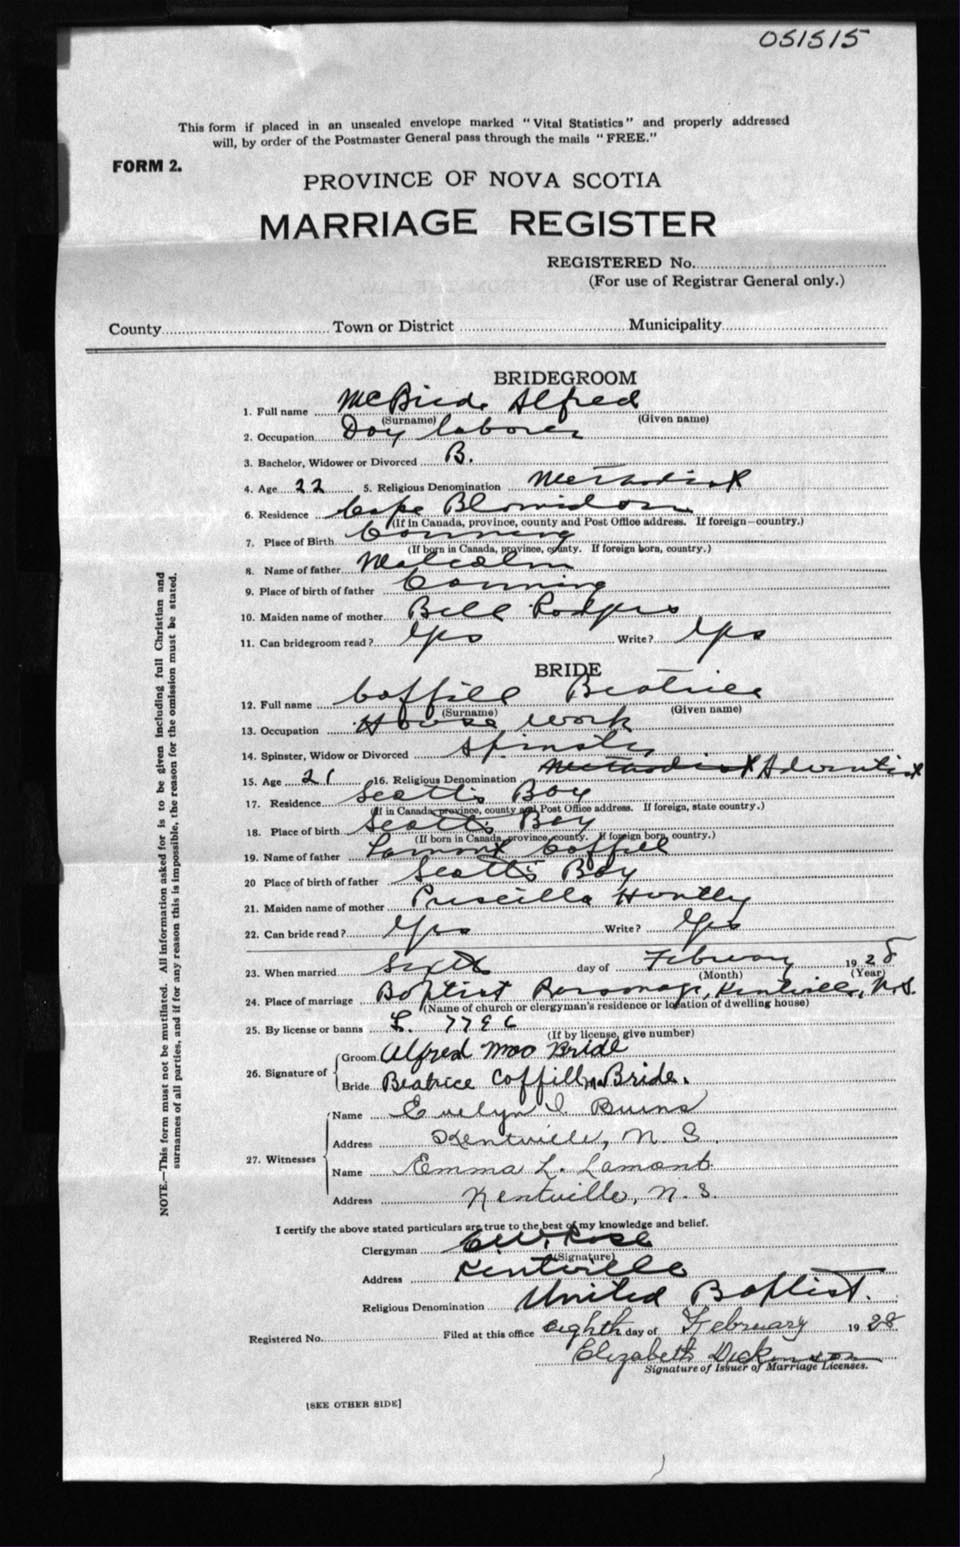 051515
This form if placed in an unsealed envelope marked "Vital Statistics" and properly addressed
will, by order of the Postmaster General pass through the mails "FREE."
FORM 2.
PROVINCE OF NOVA SCOTIA
MARRIAGE REGISTER
REGISTERED No.
(For use of Registrar General only.)
County Town or District Municipality
BRIDEGROOM
1. Full name McBride Alfred
(Surname) (Given name)
2. Occupation Day laborer
3. Bachelor, Widower or Divorced B.
4. Age 22 5. Religious Denomination Methodist
6. Residence Cape Blomidon
(If in Canada, province, county and Post Office address. If foreign—country.)
7. Place of Birth Canning
(If born in Canada, province, county. If foreign born, country.)
8. Name of father Malcolm
9. Place of birth of father Canning
10. Maiden name of mother Bell Rodgers
11. Can bridegroom read? Yes Write? Yes
BRIDE
12. Full name Coffill Beatrice
(Surname) (Given name)
13. Occupation House work
14. Spinster, Widow or Divorced Spinster
15. Age 21 16. Religious Denomination Methodist Adventist
17. Residence Scotts Bay
(If in Canada, province, county and Post Office address. If foreign, state country.)
18. Place of birth Scotts Bay
(If born in Canada, province, county. If foreign born, country.)
19. Name of father Lamont Coffill
20 Place of birth of father Scotts Bay
21. Maiden name of mother Priscilla Huntley
22. Can bride read? Yes Write? Yes
23. When married Sixth day of February 1928
(Month) (Year)
24. Place of marriage Baptist Parsonage, Kentville, N.S.
(Name of church or clergyman's residence or location of dwelling house)
25. By license or banns L. 7796
(If by license, give number)
26. Signature of
Groom Alfred Mac Bride
Bride Beatrice Coffill McBride.
27. Witnesses
Name Evelyn I Burns
Address Kentville, N. S.
Name Emma L. Lamont
Address Kentville, N. S.
I certify the above stated particulars are true to the best of my knowledge and belief.
Clergyman E.W. Rose
(Signature)
Address Kentville
Religious Denomination United Baptist.
Registered No. Filed at this office eighth day of February 1928
Elizabeth Dickinson
Signature of Issuer of Marriage Licenses.
[SEE OTHER SIDE]
NOTE.—This form must not be mutilated. All information asked for is to be given including full Christian and
surnames of all parties, and if for any reason this is impossible, the reason for the omission must be stated.